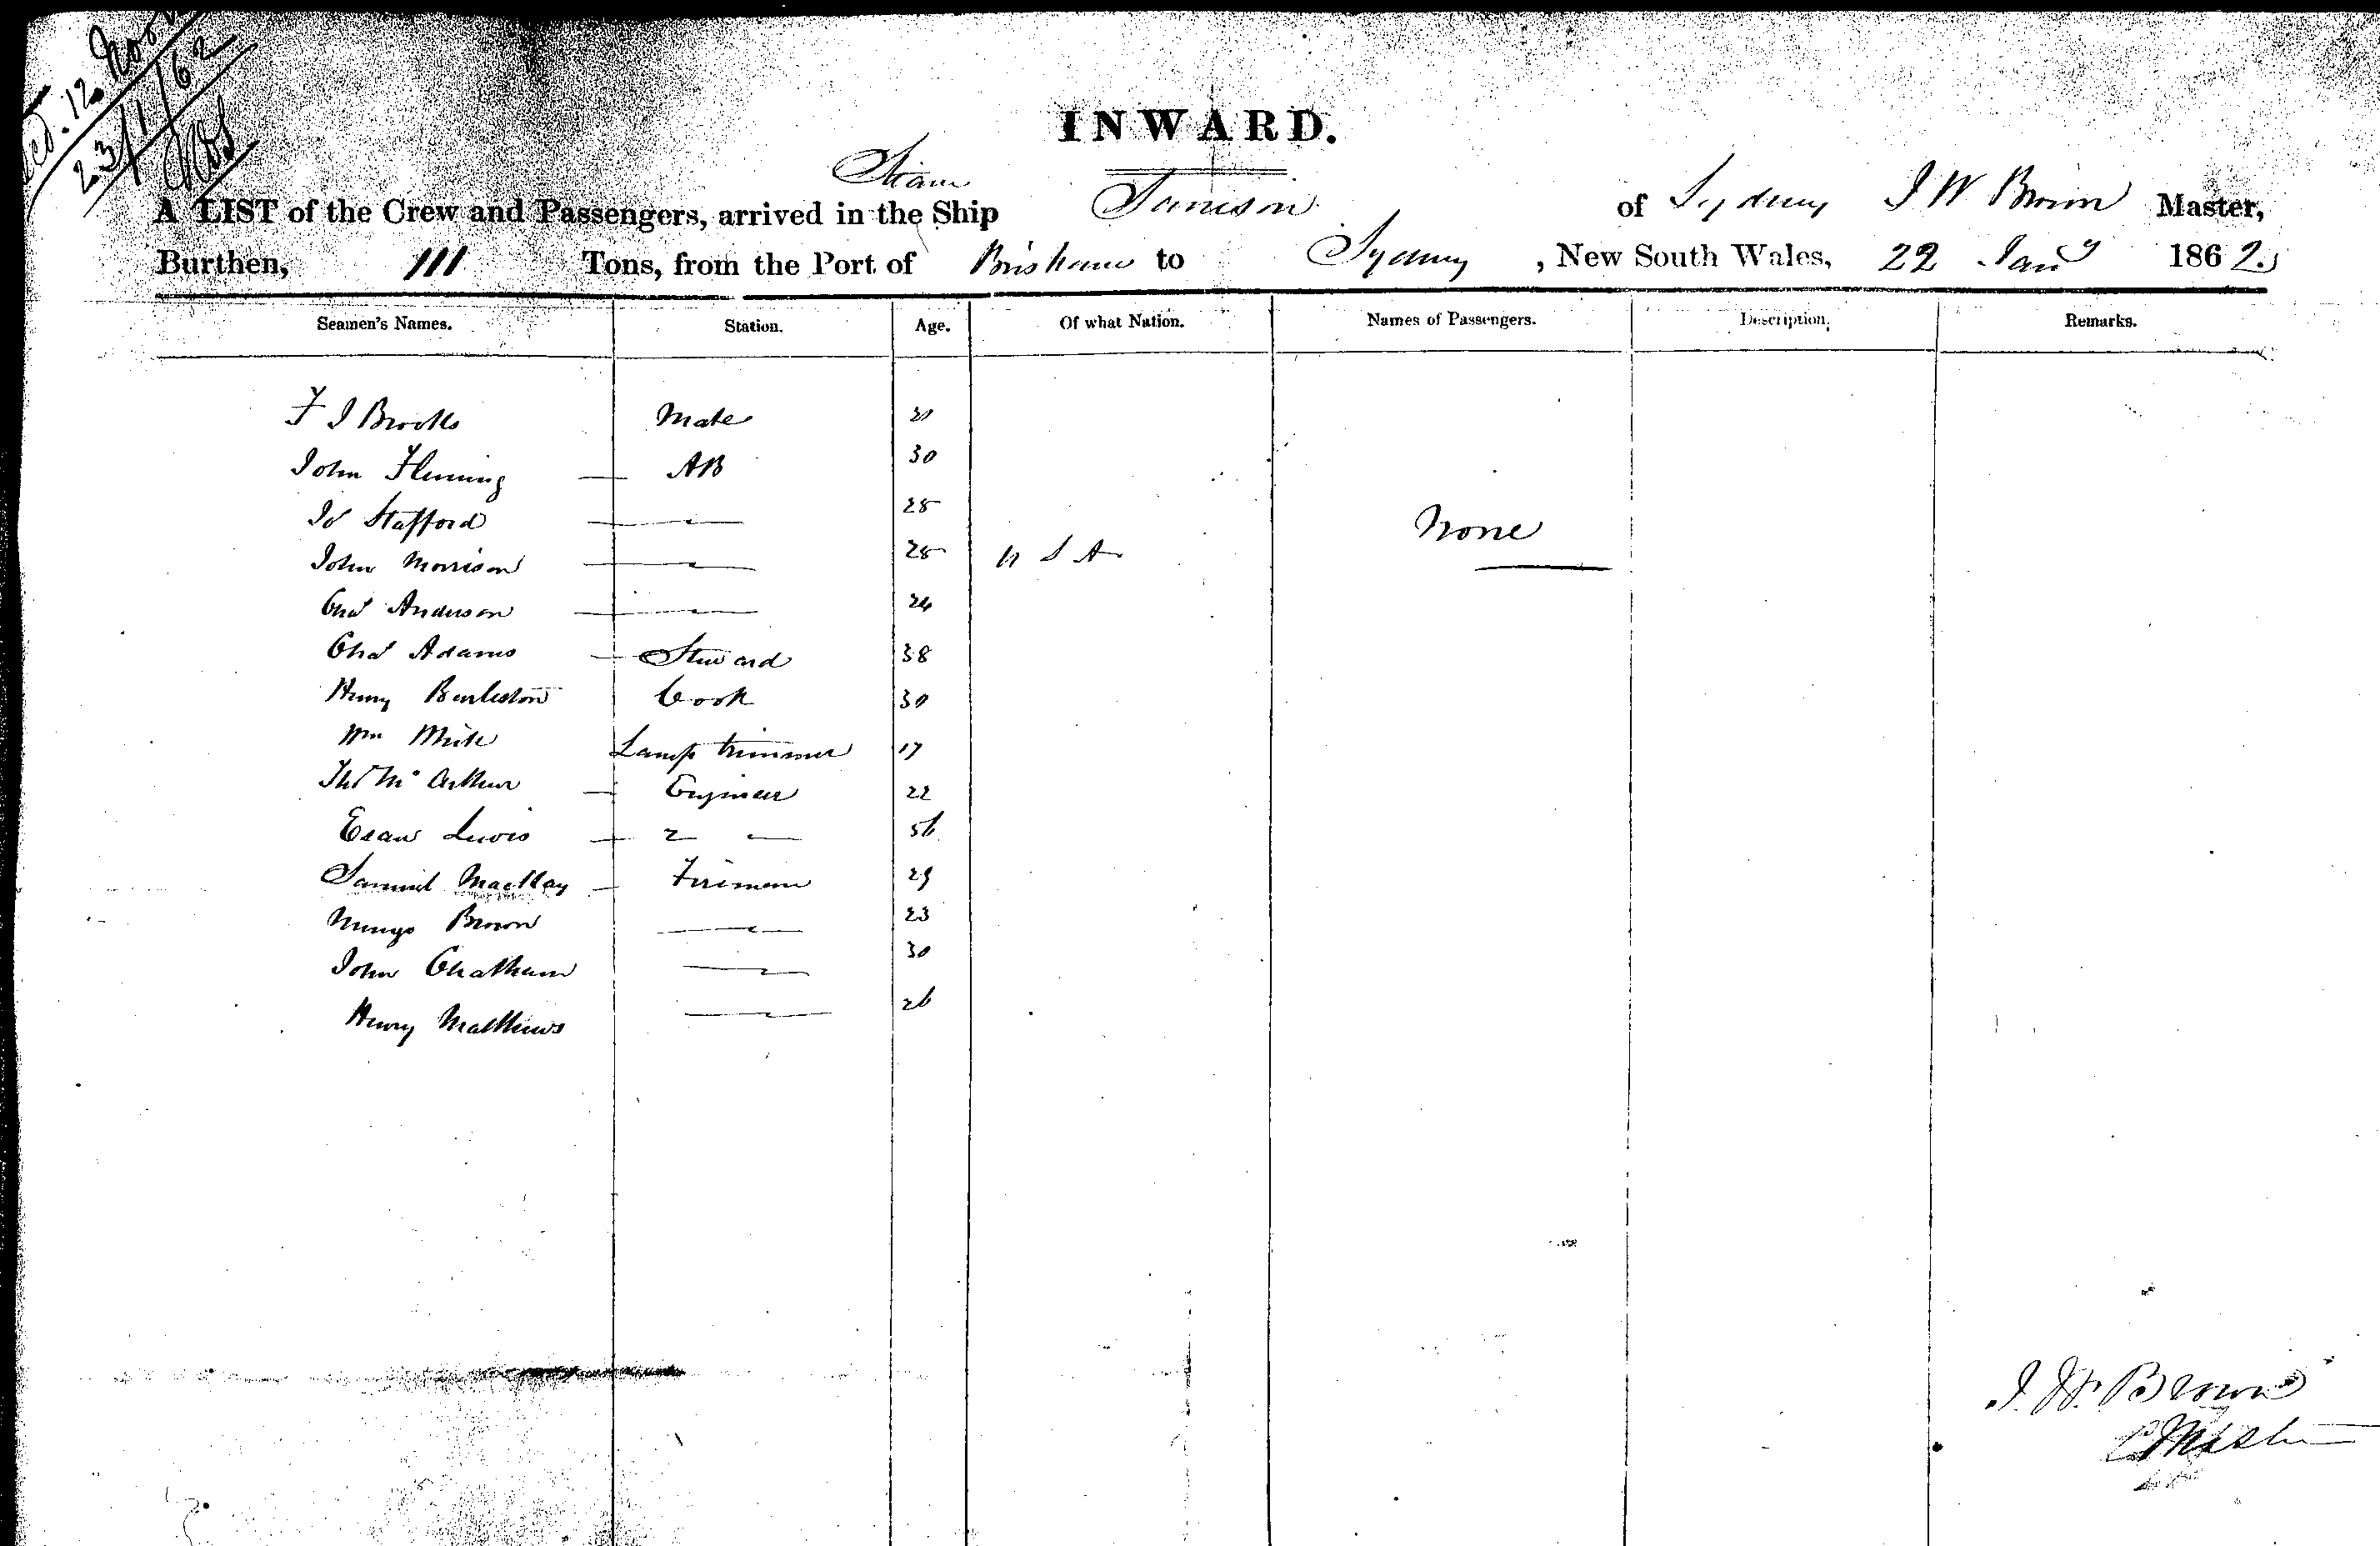 23/1/62
INWARD.
Steam
A LIST of the Crew and Passengers, arrived in the Ship Samson of Sydney J W Brown Master,
Burthen, 111 Tons, from the Port of Brisbane to Sydney, New South Wales, 22 Jany 1862.
Seamen's Names. Station. Age. Of what Nation. Names of Passengers. Description. Remarks.
F J Brooks Mate
John Fleming — AB 30
Js Stafford — 28
John Morrison — 28 U S A None
Chas Anderson — 24
Chas Adams — Steward 38
Henry Cook 30
Wm Lamp trimmer 17
Thos Mc Arthur — Engineer 22
Esau Lewis — 2 — 56
Samuel MacKay — Fireman 29
Mungo Brown — 23
John Chatham — 30
Henry Matthews — 26
J. W. Brown
Master